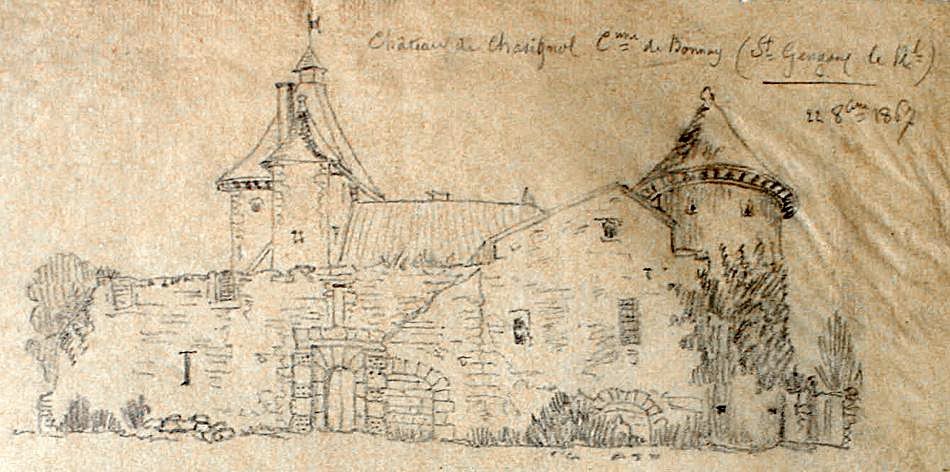 Château de Chasignol Cmne de Bonnay (St Gengoux le Rl)
22 8bre 1867